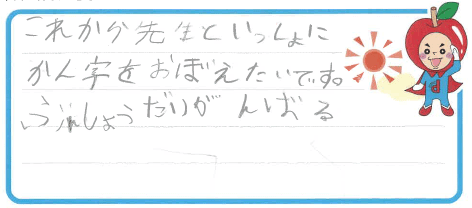 これから先生といっしょに
かん字をおぼえたいです。
ぶんしょうだいがんばる